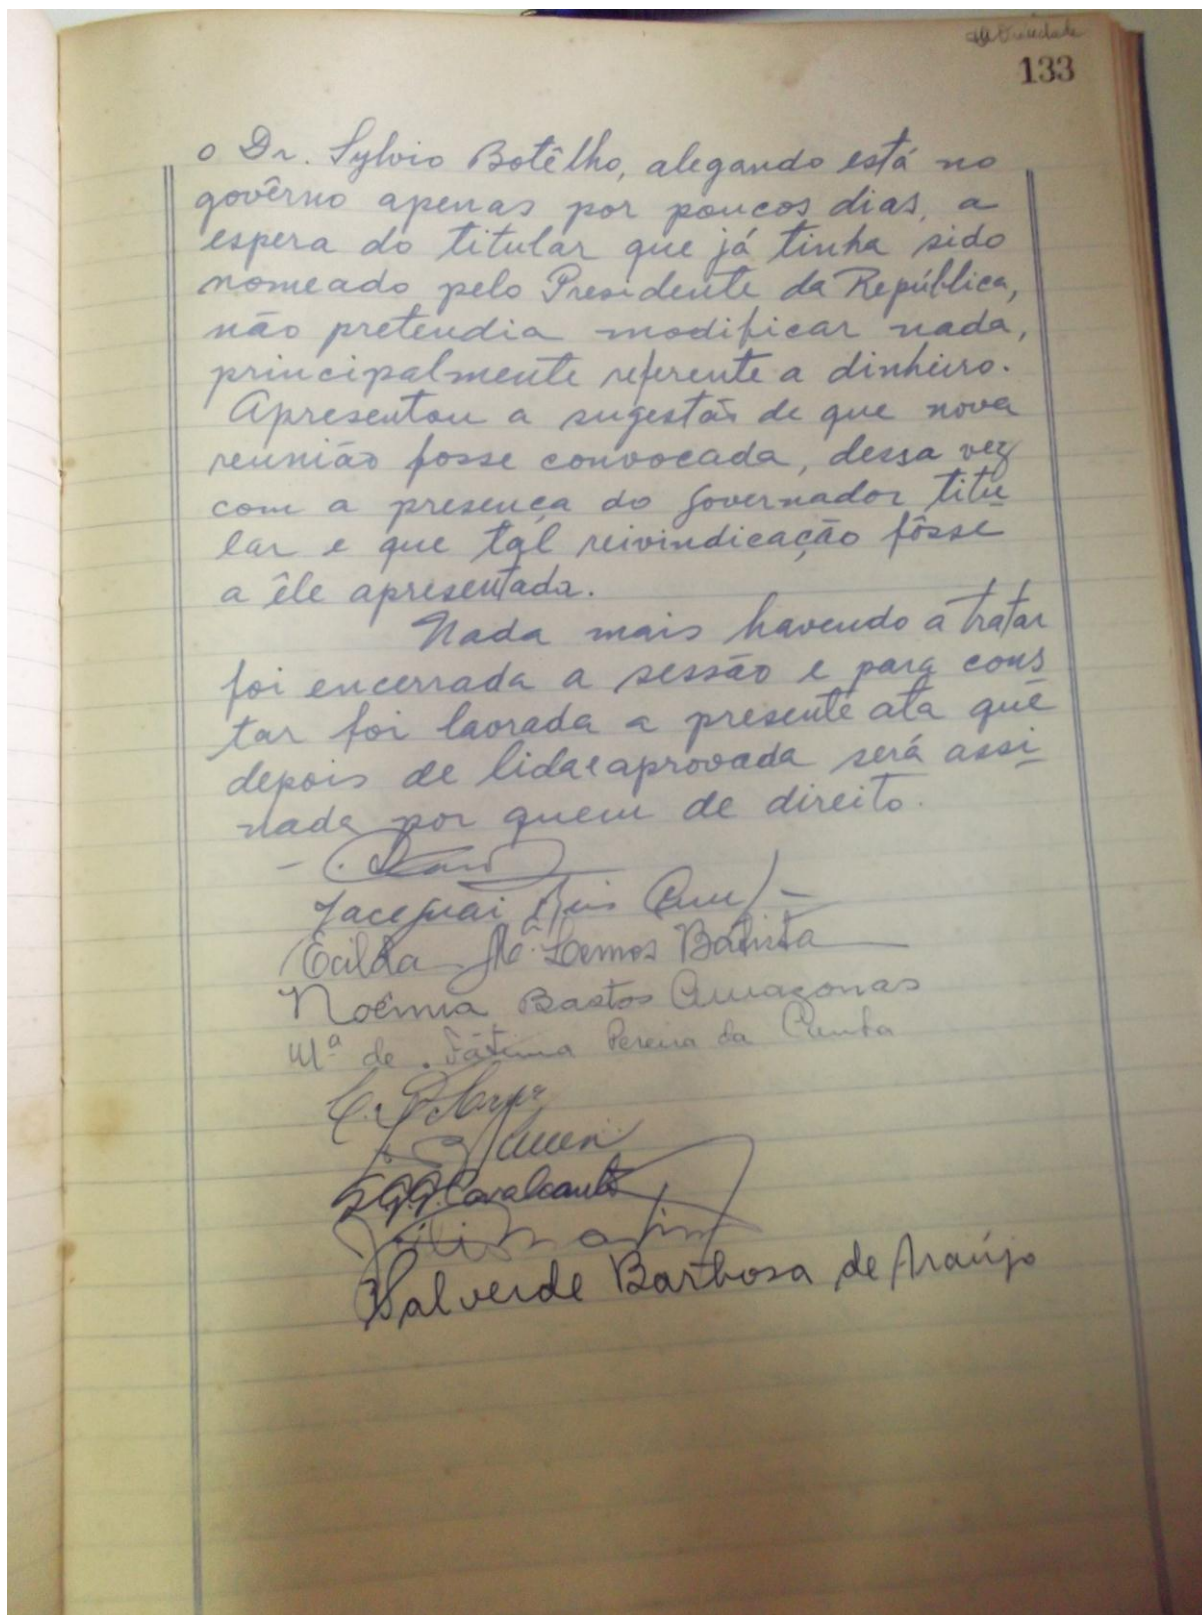 133
o Dr. Sylvio Botêlho, alegando está no
govêrno apenas por poucos dias, a
espera do titular que já tinha sido
nomeado pelo Presidente da República,
não pretendia modificar nada,
principalmente referente a dinheiro.
Apresentou a sugestão de que nova
reunião fosse convocada, dessa vez
com a presença do governador titu
lar e que tal reivindicação fôsse
a êle apresentada.
Nada mais havendo a tratar
foi encerrada a sessão e para cons
tar foi laorada a presente ata que
depois de lida e aprovada será assi
nada por quem de direito.
Jaceguai Reis
Ecilda Lemos Batista
Noêmia Bastos Amazonas
Mª de Fátima Pereira da Cunha
Cavalcante
Valverde Barbosa de Araújo